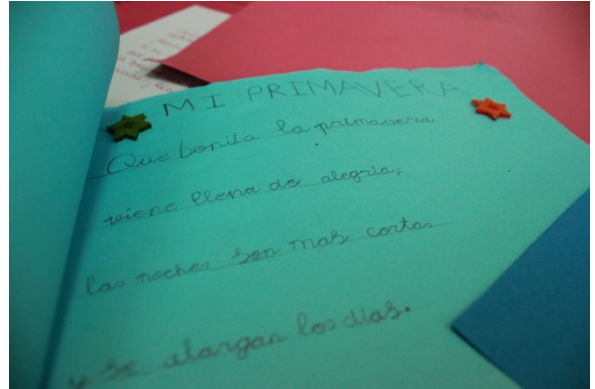 MI PRIMAVERA
Que bonita la primavera
viene llena de alegria,
las noches son mas cortas
y se alargan los dias.